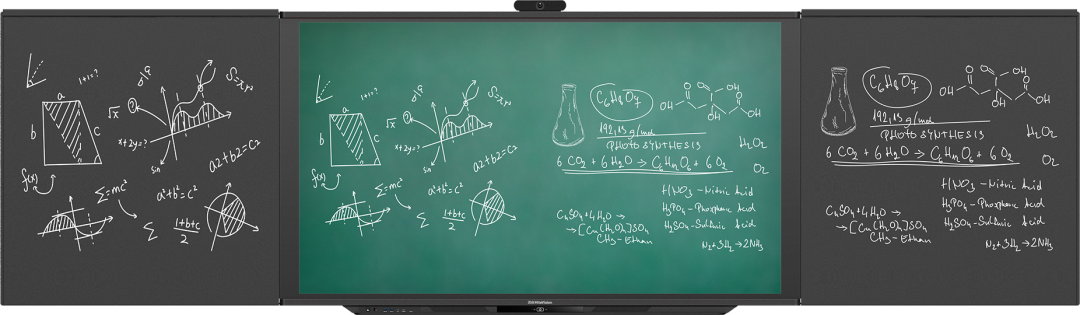 1+1=?
a
b
c
a/b
√x
?
S=x,y
x+2y=?
sin
a2+b2=c2
f(x)
Σ=mc²
a²+b²=c²
Σ 1+b+c
2
1+1=?
a
b
c
a/b
√x
?
S=x,y
x+2y=?
sin
a2+b2=c2
f(x)
Σ=mc²
a²+b²=c²
Σ 1+b+c
2
C6H8O7
O O OH
OH O
OH OH
192,13 g/mol
PHOTOSYNTHESIS
H2O2
6 CO2 + 6 H2O → C6H12O6 + 6 O2
O2
HNO3 - Nitric Acid
H3PO4 - Phosphoric Acid
H2SO4 - Sulfuric Acid
CuSO4+4H2O →
→ [Cu(H2O)4]SO4
CH3 - Ethan
N2+3H2→2NH3
C6H8O7
O O OH
OH O
OH OH
192,13 g/mol
PHOTOSYNTHESIS
H2O2
6 CO2 + 6 H2O → C6H12O6 + 6 O2
O2
HNO3 - Nitric Acid
H3PO4 - Phosphoric Acid
H2SO4 - Sulfuric Acid
CuSO4+4H2O →
→ [Cu(H2O)4]SO4
CH3 - Ethan
N2+3H2→2NH3